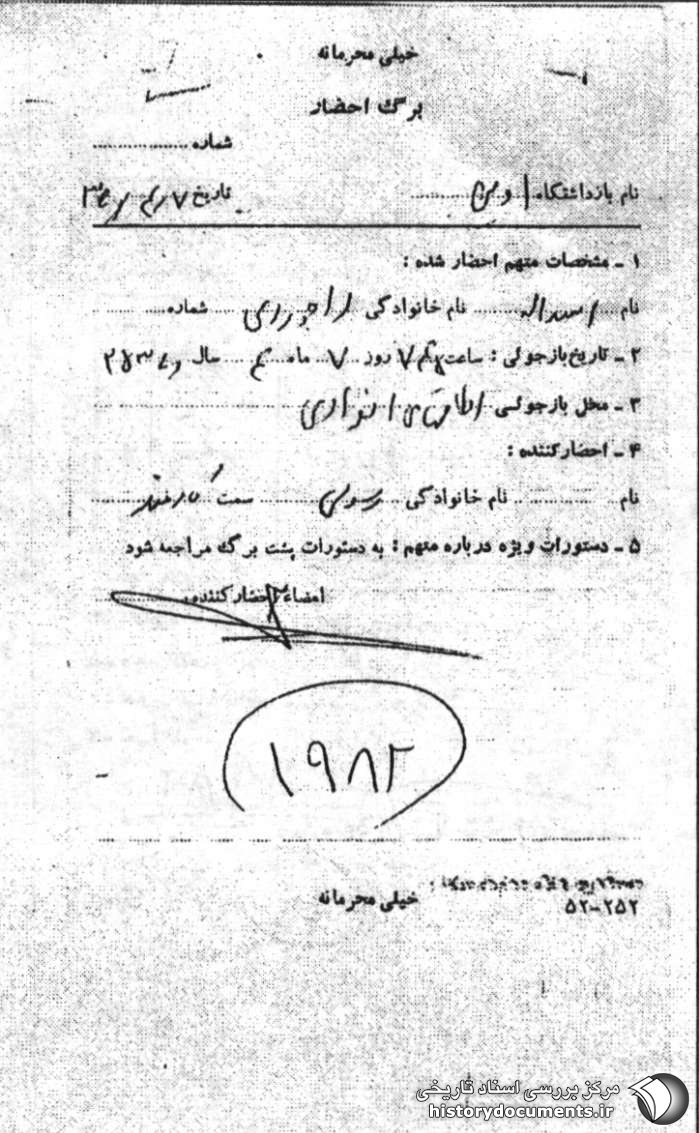 خیلی محرمانه
برگ احضار
شماره
نام بازداشتگاه اوین تاریخ
۱ ـ مشخصات متهم احضار شده :
نام اسداله نام خانوادگی لاجوردی شماره
۲ ـ تاریخ بازجوئی : ساعت روز ۷ ماه سال
۳ ـ محل بازجوئی اطاقهای انفرادی
۴ ـ احضار کننده :
نام نام خانوادگی رسولی سمت کارمند
۵ ـ دستورات ویژه درباره متهم : به دستورات پشت برگ مراجعه شود
امضاء احضار کننده
۱۹۸۲
۵۲-۲۵۲
خیلی محرمانه
مرکز بررسی اسناد تاریخی
historydocuments.ir